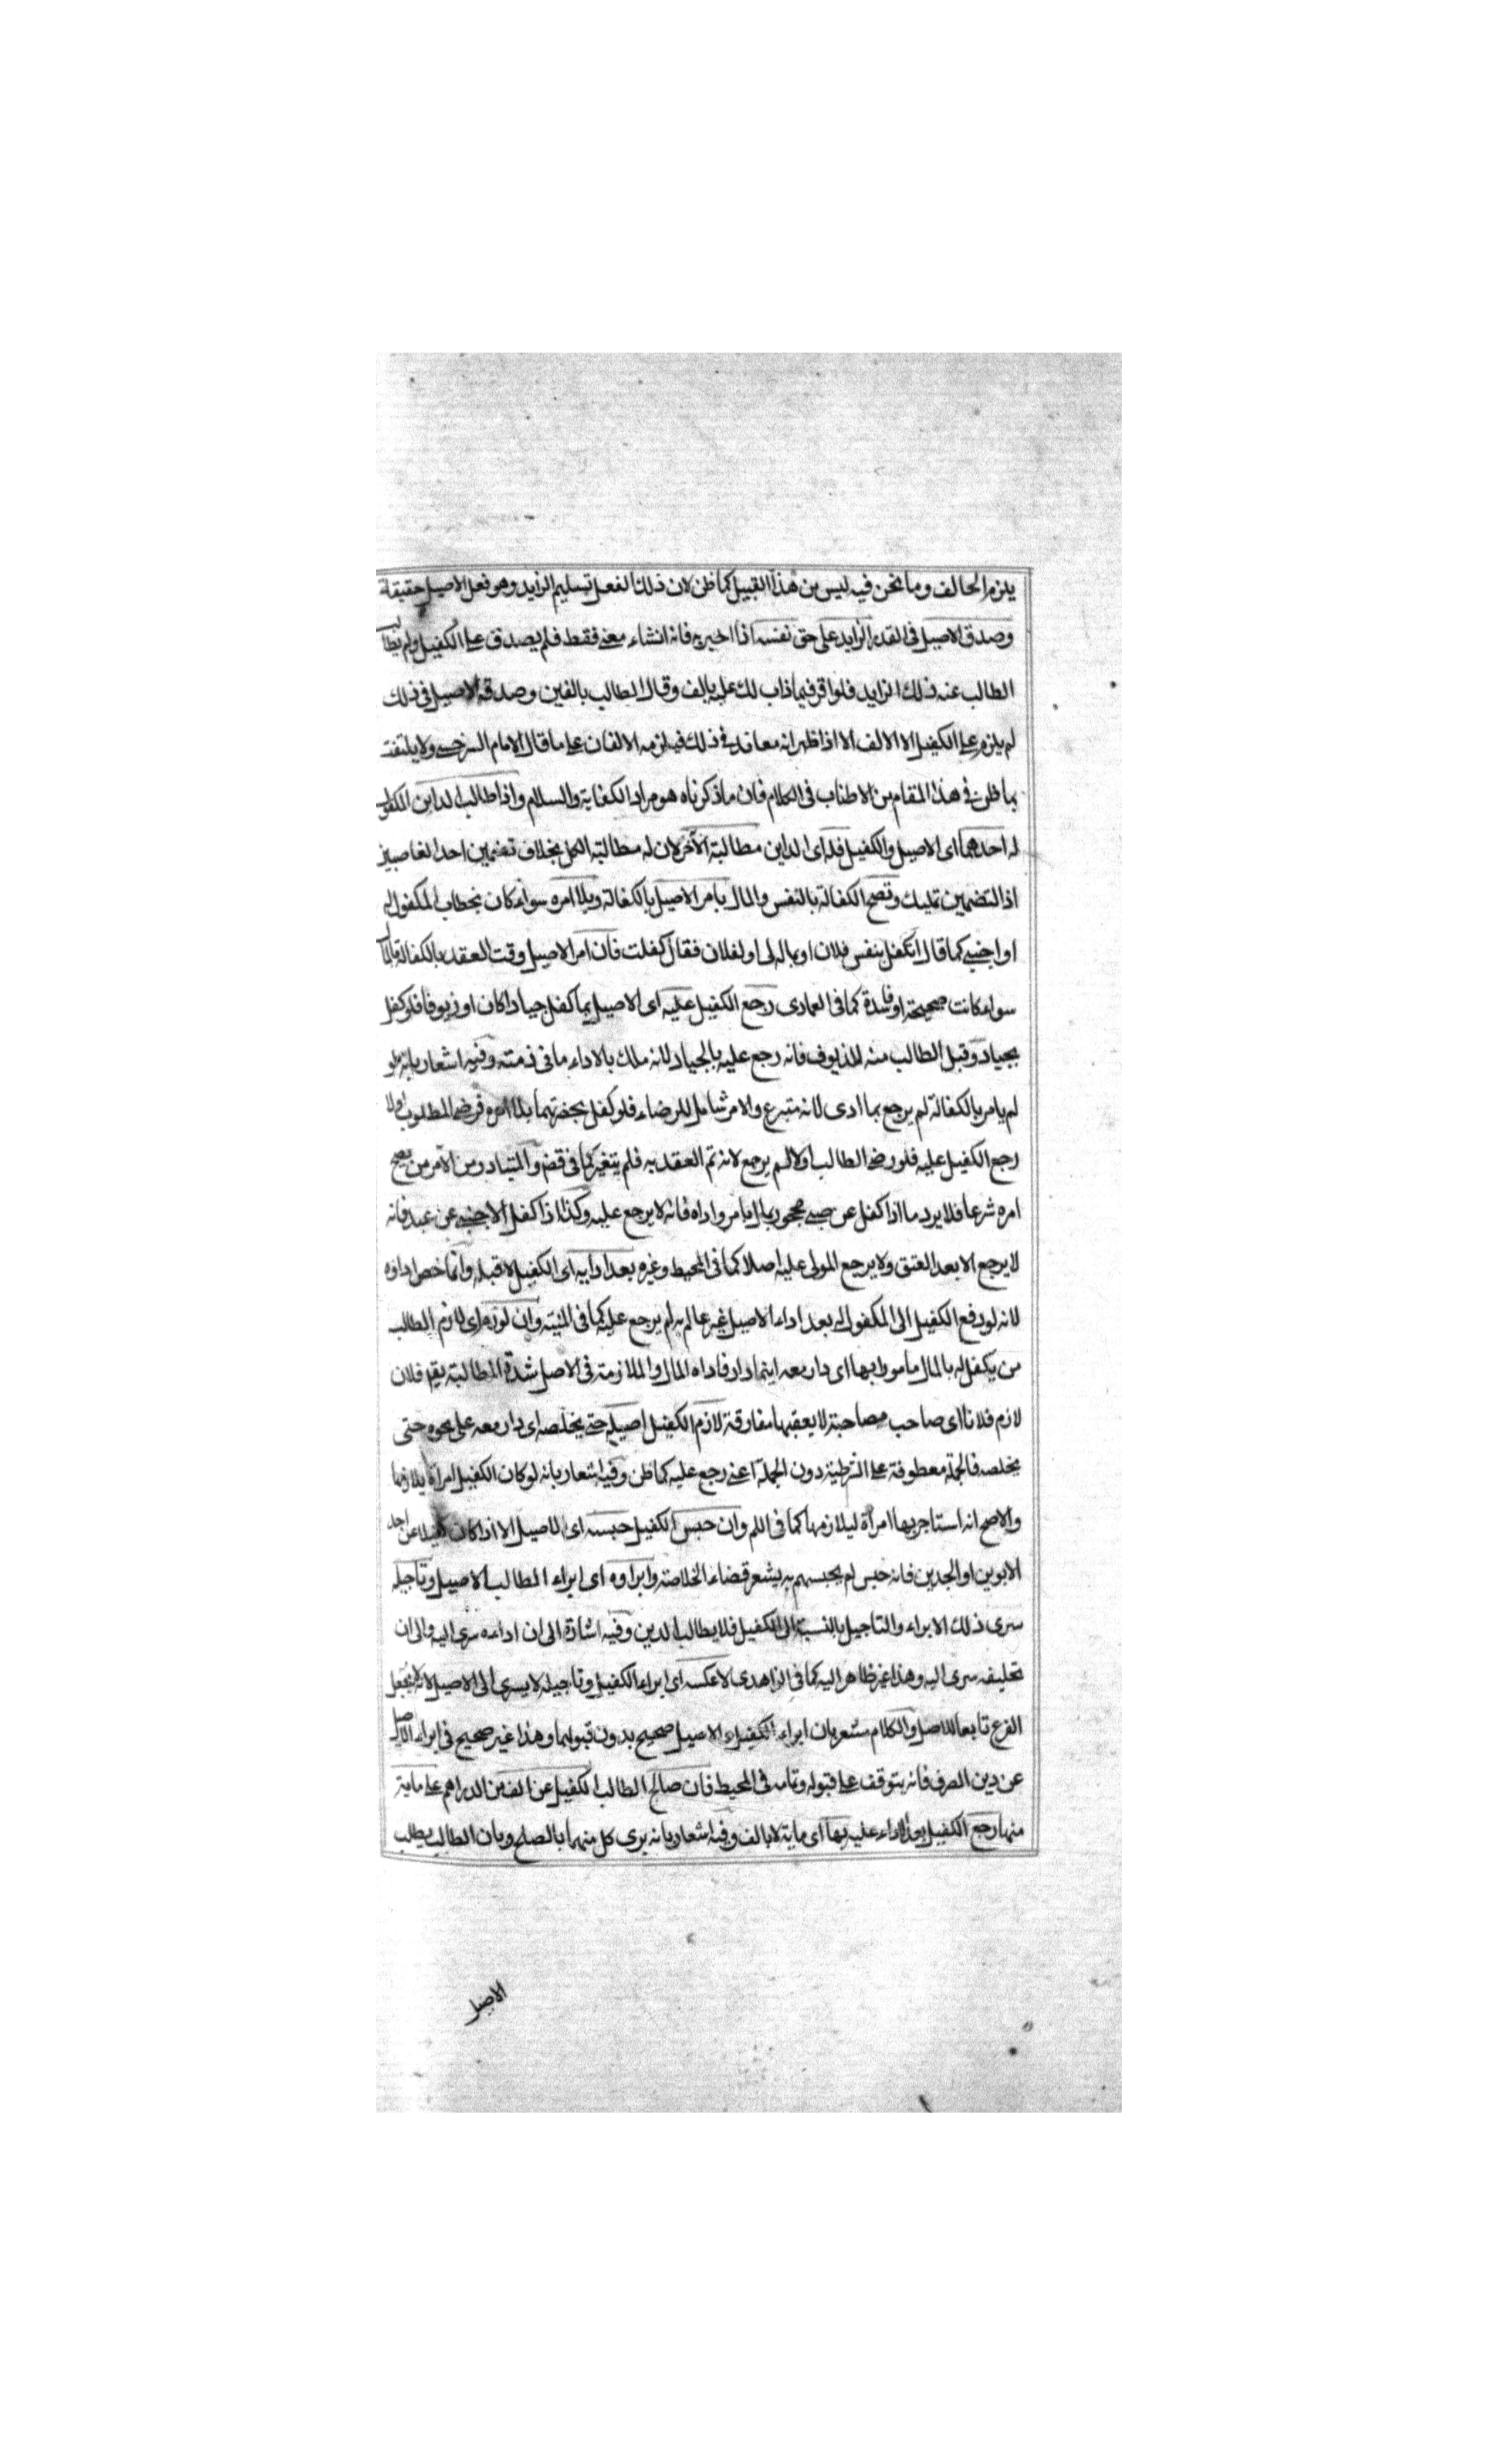 يلزم الحالف وما نحن فيه ليس من هذا القبيل كما ظن لان ذلك الفعل تسليم الزايد وهو فعل الاصيل حقيقة
وصدق الاصيل فى القدر الزايد على حق نفسه اذا اخبر به فانه انشاء معنى فقط فلم يصدق على الكفيل ولم يطالب
الطالب عنه ذلك الزايد فلو اقر فيما ذاب لك عليه بالف وقال الطالب بالفين وصدقه الاصيل فى ذلك
لم يلزم على الكفيل الا الالف الا اذا ظهر انه معاند فى ذلك فيلزمه الالفان على ما قال الامام السرخسى ولا يلتفت
بما ظن فى هذا المقام من الاطناب فى الكلام فان ما ذكرناه هو مراد الكفاية والسلام واذا طالب الداين المكفول
له احدهما اى الاصيل والكفيل فله اى الداين مطالبة الآخر لان له مطالبة الكل بخلاف تضمين احد الغاصبين
اذ التضمين تمليك وتصح الكفالة بالنفس والمال بامر الاصيل بالكفالة وبلا امره سواء كان بخطاب المكفول له
او اجنبى كما قال اتكفل بنفس فلان او بماله لى او لفلان فقال كفلت فان امر الاصيل وقت العقد بالكفالة بالمال
سواء كانت صحيحة او فاسدة كما فى العمادى رجع الكفيل عليه اى الاصيل بما كفل جيادا كان او زيوفا فلو كفل
بجياد وقبل الطالب منه الزيوف فانه رجع عليه بالجياد لانه ملك بالاداء ما فى ذمته وفيه اشعار بانه لو
لم يامر بالكفالة لم يرجع بما ادى لانه متبرع والامر شامل للرضاء فلو كفل بحضرتهما بلا امره فرضى المطلوب اولا
رجع الكفيل عليه فلو رضى الطالب اولا لم يرجع لانه تم العقد به فلم يتغير كما فى قضو المتبادر من الآمر من يصح
امره شرعا فلا يرد ما اذا كفل عن صبى محجور بمال بامر واداه فانه لا يرجع عليه وكذا اذا كفل الاجنبى عن عبد فانه
لا يرجع الا بعد العتق ولا يرجع المولى عليه اصلا كما فى المحيط وغيره بعد ادايه اى الكفيل لا قبله وانما خص اداؤه
لانه لو دفع الكفيل الى المكفول له بعد اداء الاصيل غير عالم به لم يرجع عليه كما فى المنية وان لوزم اى لازم الطالب
من يكفل له بالمال مامورا بها اى دار معه اينما دار فاداه المال والملازمة فى الاصل شدة المطالبة يقم فلان
لازم فلانا اى صاحب مصاحبة لا يعقبها مفارقة لازم الكفيل اصيله حتى يخلصه اى دار معه على نحوه حتى
يخلصه فالجملة معطوفة على الشرطية دون الجملة اعنى رجع عليه كما ظن وفيه اشعار بانه لو كان الكفيل امراة يلازمها
والاصح انه استاجر بها امراة ليلازمها كما فى اللم وان حبس الكفيل حبسه اى الاصيل الا اذا كان كفيلا عن احد
الابوين او الجدين فانه حبس لم يحبسهم به يشعر قضاء الخلاصة وابراوه اى ابراء المطالب الاصيل وتاجيله
سرى ذلك الابراء والتاجيل بالنسبة الى الكفيل فلا يطالب الدين وفيه اشارة الى ان اداءه سرى اليه والى ان
تحليفه سرى اليه وهذا غير ظاهر اليه كما فى الزاهدى لا عكسه اى ابراء الكفيل وتاجيله لا يسرى الى الاصيل لانه لا يجعل
الفرع تابعا للاصل والكلام مشعر بان ابراء الكفيل والاصيل صحيح بدون قبولهما وهذا غير صحيح فى ابراء الاصيل
عن دين الصرف فانه يتوقف على قبوله وتمامه فى المحيط فان صالح الطالب الكفيل عن الف من الدراهم على ماية
منها رجع الكفيل بعد الاداء عليه بها اى ماية لا بالف وفيه اشعار بانه برى كل منهما بالصلح وبان الطالب يطلب
الاصيل